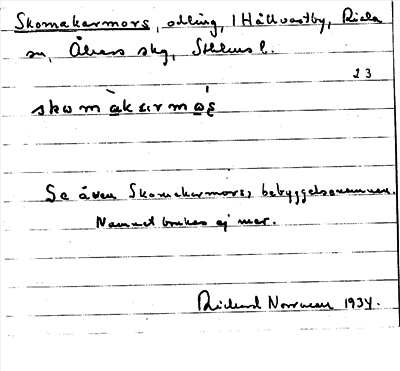 Skomakarmors, odling, i Hållvastby, Riala
sn, Åkers skg, Sthlms l.
23
skωmàkɛrmωʂ
Se även Skomakarmors, bebyggelsenamnen.
Namnet brukas ej mer.
Rickard Norrman 1934.